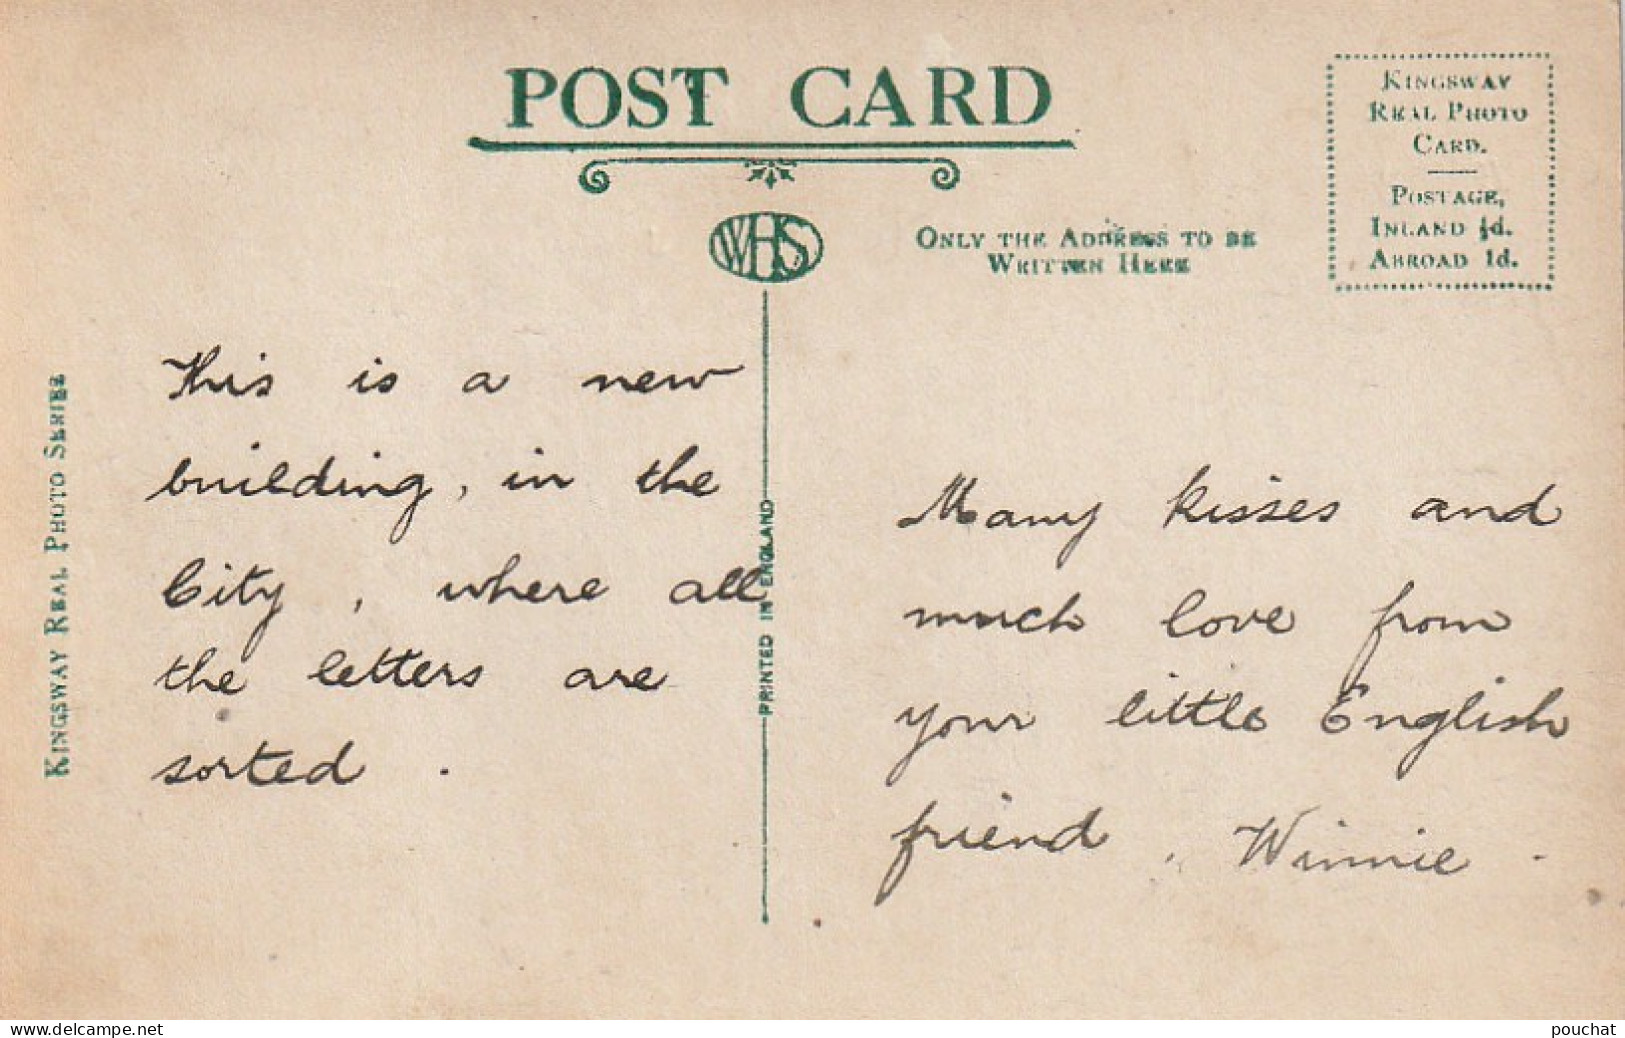 POST CARD
KINGSWAY
REAL PHOTO
CARD.
POSTAGE,
INLAND ½d.
ABROAD 1d.
WHS
ONLY THE ADDRESS TO BE
WRITTEN HERE
KINGSWAY REAL PHOTO SERIES
PRINTED IN ENGLAND
This is a new
building, in the
City, where all
the letters are
sorted.
Many kisses and
much love from
your little English
friend, Winnie.
www.delcampe.net
pouchat